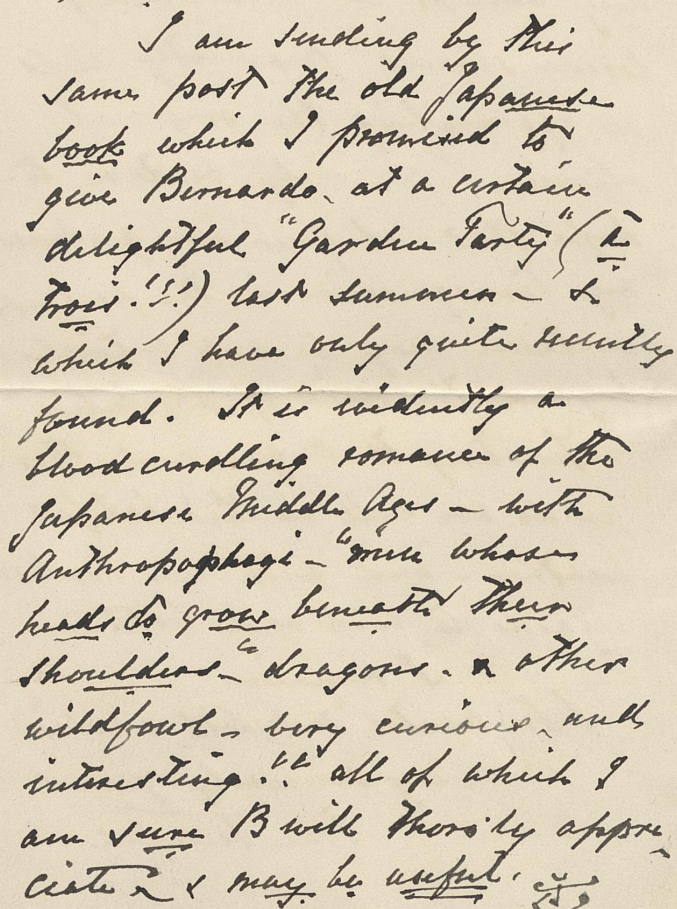 I am sending by this
same post the old Japanese
book which I promised to
give Bernardo, at a certain
delightful "Garden Party" (à
trois!!!) last summer - &
which I have only quite recently
found. It is evidently a
blood curdling romance of the
Japanese Middle Ages - with
Anthropophagi - "men whose
heads do grow beneath their
shoulders -" dragons - & other
wildfowl - very curious, and
interesting!! all of which I
am sure B will thoroly appre-
ciate - & may be useful.